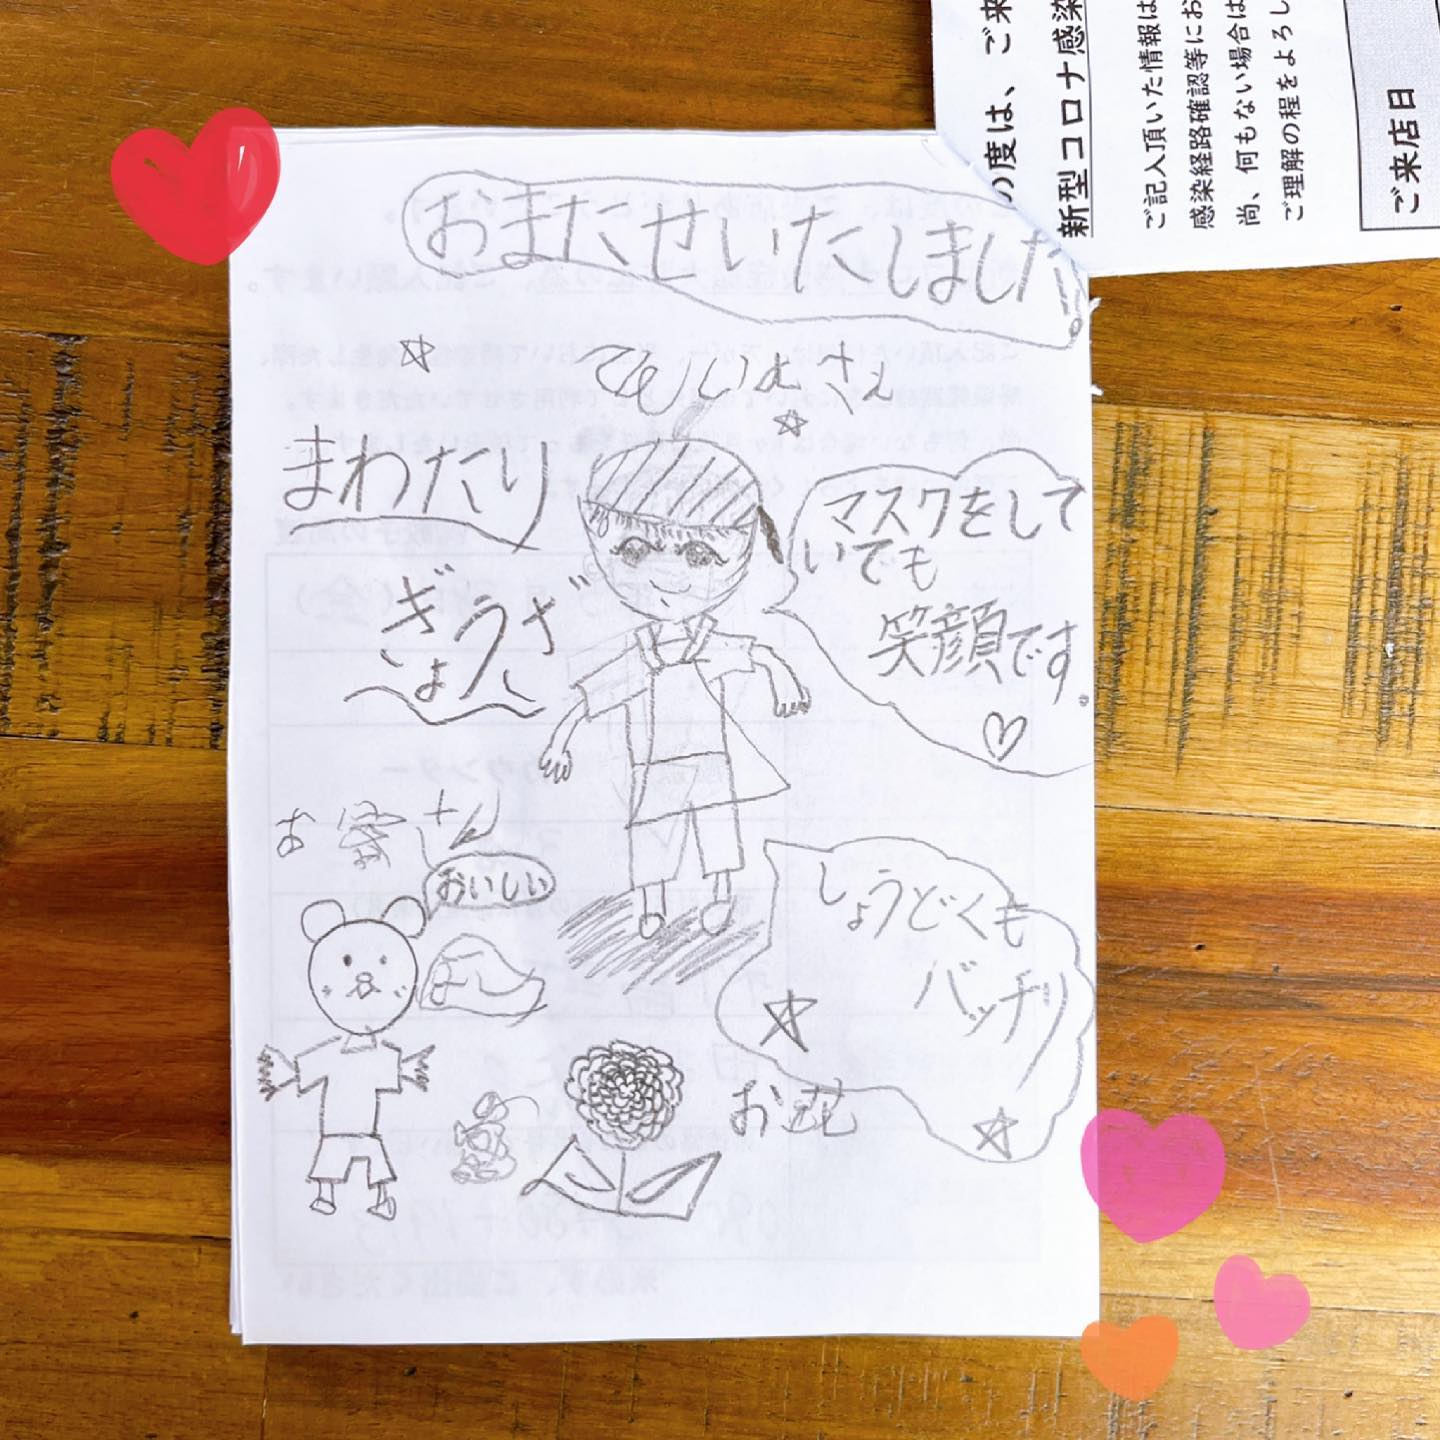 おまたせいたしました。
てんいんさん
まわたり
ぎょうざ
マスクをして
いても
笑顔です。
お客さん
おいしい
しょうどくも
バッチリ
お花
の度は、ご来
新型コロナ感染
ご記入頂いた情報は
感染経路確認等にお
尚、何もない場合は
ご理解の程をよろし
ご来店日